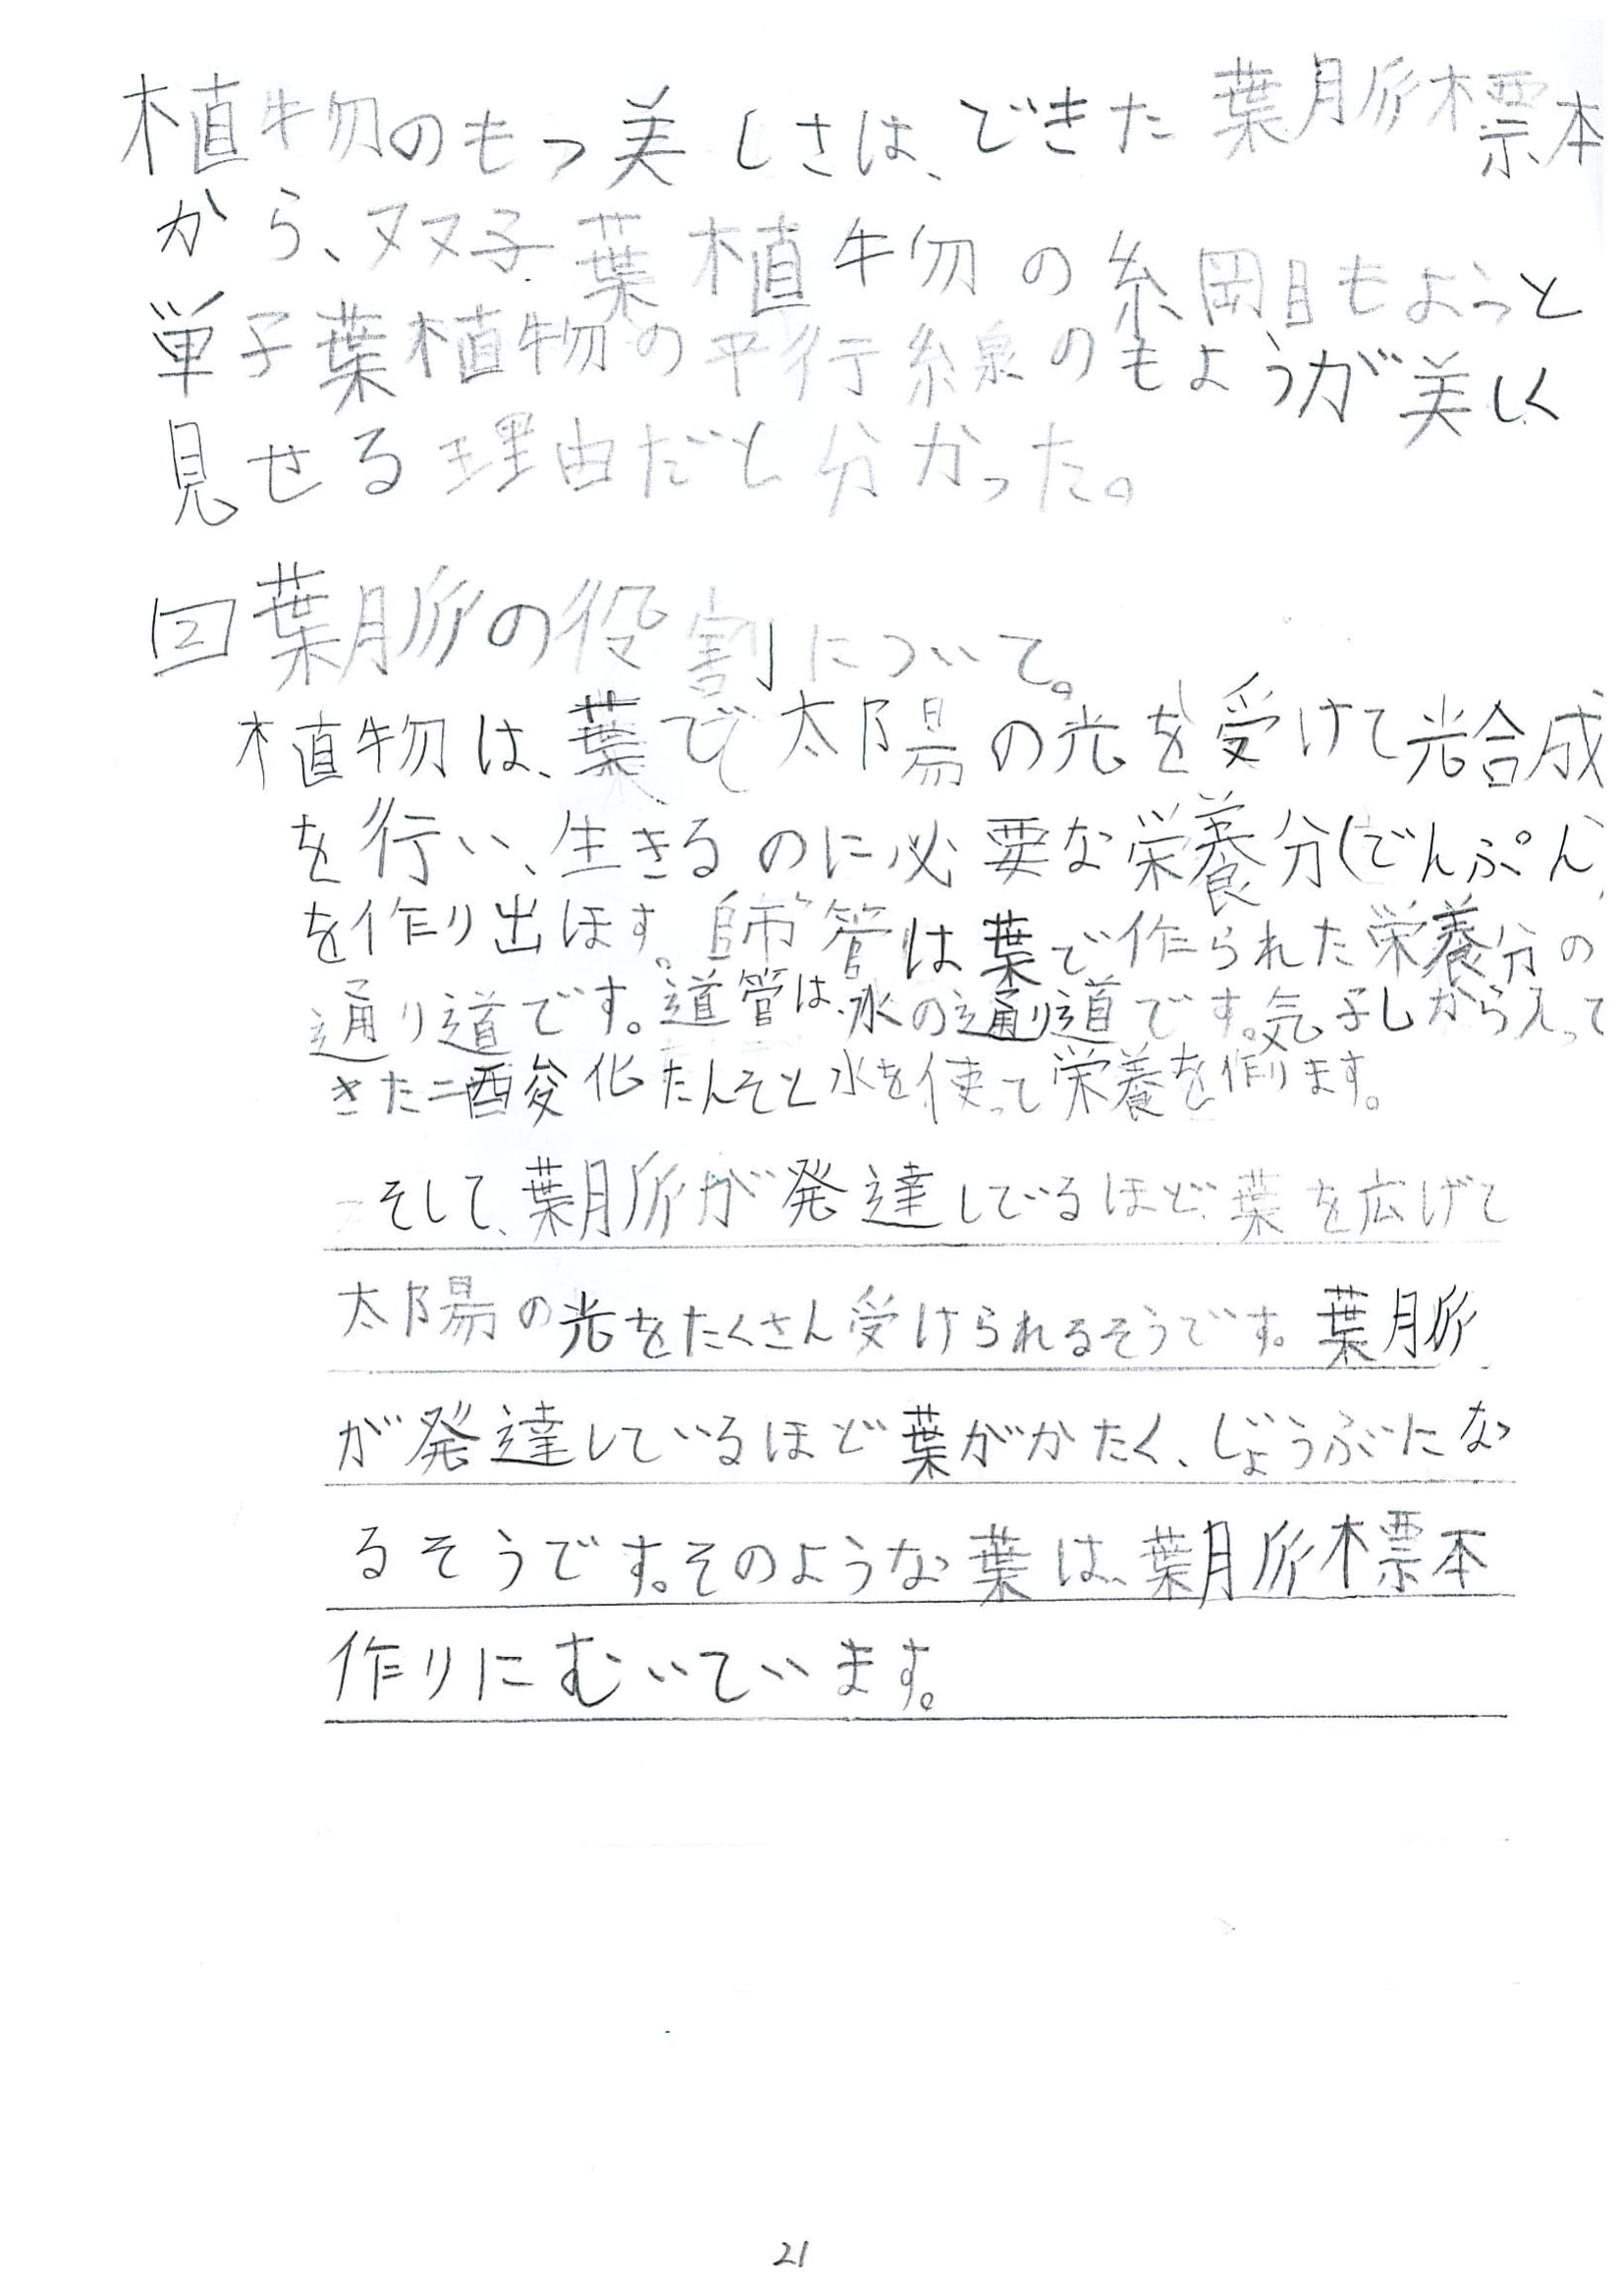 植物のもつ美しさは、できた葉脈標本
から、双子葉植物の網目もようと
単子葉植物の平行線のもようが美しく
見せる理由だと分かった。
2 葉脈の役割について。
植物は、葉で太陽の光を受けて光合成
を行い、生きるのに必要な栄養分(でんぷん)
を作り出ほす。師管は葉で作られた栄養分の
通り道です。道管は、水の通り道です。気孔から入って
きた二酸化たんそと水を使って栄養を作ります。
そして、葉脈が発達しているほど、葉を広げて
太陽の光をたくさん受けられるそうです。葉脈
が発達しているほど葉がかたく、じょうぶにな
るそうです。そのような葉は、葉脈標本
作りにむいています。
21